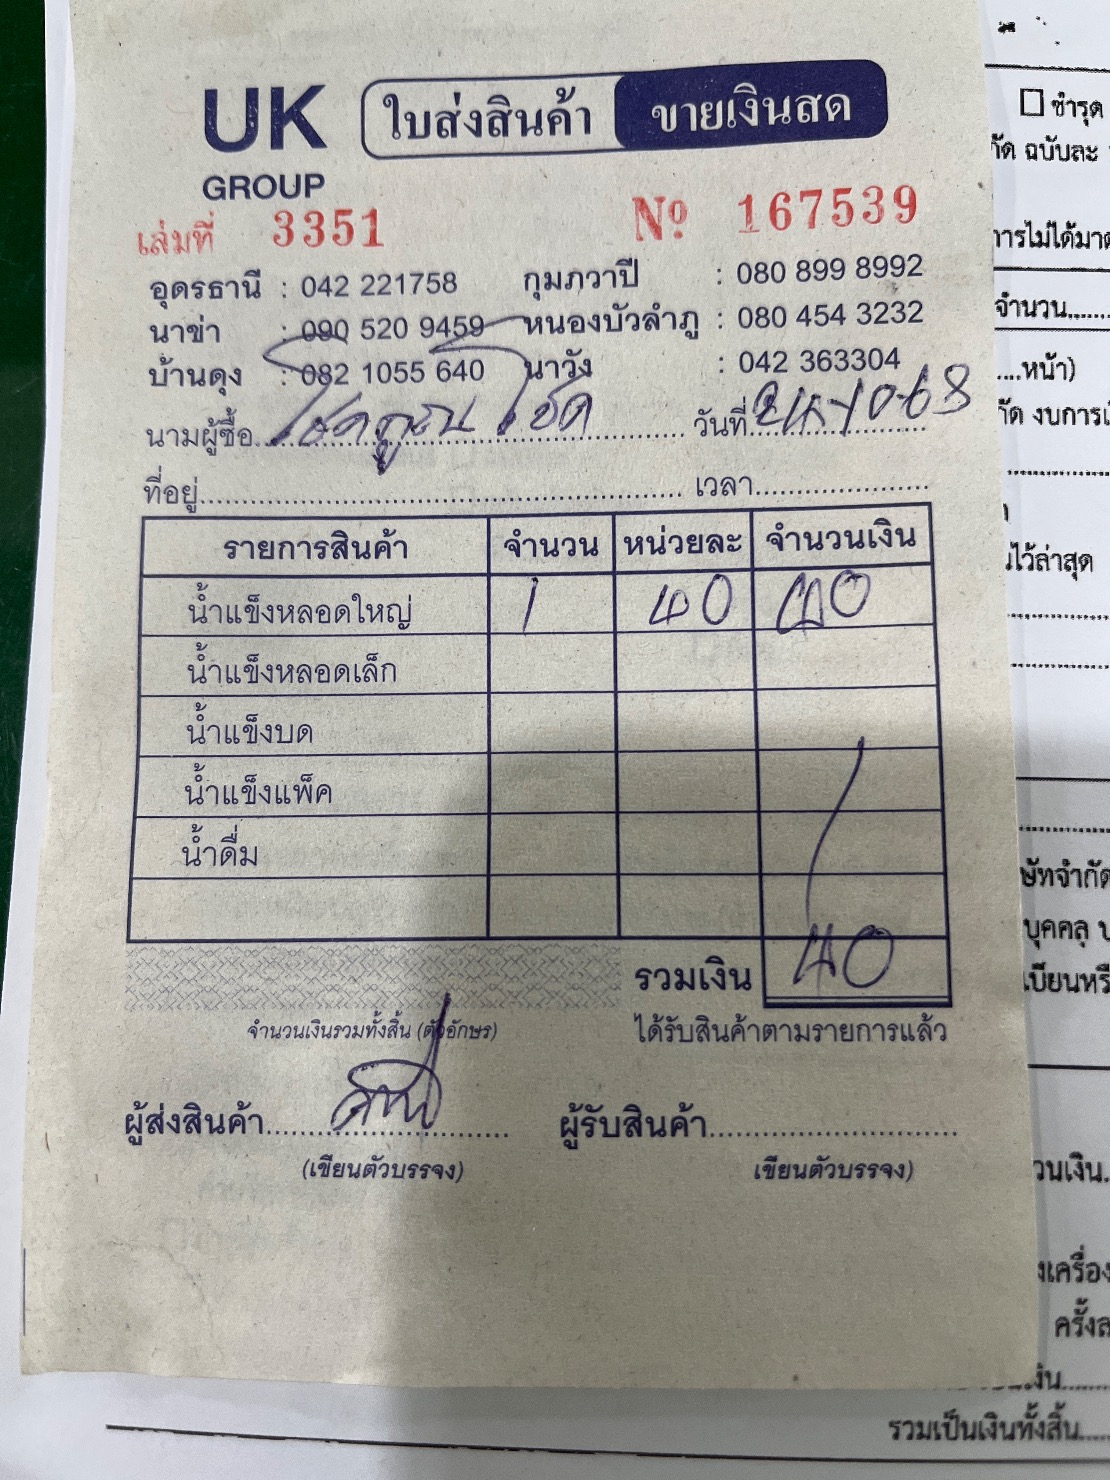 UK GROUP
ใบส่งสินค้า ขายเงินสด
เล่มที่ 3351 Nº 167539
อุดรธานี : 042 221758 กุมภวาปี : 080 899 8992
นาข่า : 090 520 9459 หนองบัวลำภู : 080 454 3232
บ้านดุง : 082 1055 640 นาวัง : 042 363304
นามผู้ซื้อ โชคคูณโชค วันที่ 24-10-68
ที่อยู่ เวลา
รายการสินค้า จำนวน หน่วยละ จำนวนเงิน
น้ำแข็งหลอดใหญ่ 1 40 40
น้ำแข็งหลอดเล็ก
น้ำแข็งบด
น้ำแข็งแพ็ค
น้ำดื่ม
รวมเงิน 40
จำนวนเงินรวมทั้งสิ้น (ตัวอักษร) ได้รับสินค้าตามรายการแล้ว
ผู้ส่งสินค้า ผู้รับสินค้า
(เขียนตัวบรรจง) เขียนตัวบรรจง)
ชำรุด
ฉบับละ
จำนวน
หน้า)
งบการ
ไว้ล่าสุด
ครั้ง
รวมเป็นเงินทั้งสิ้น